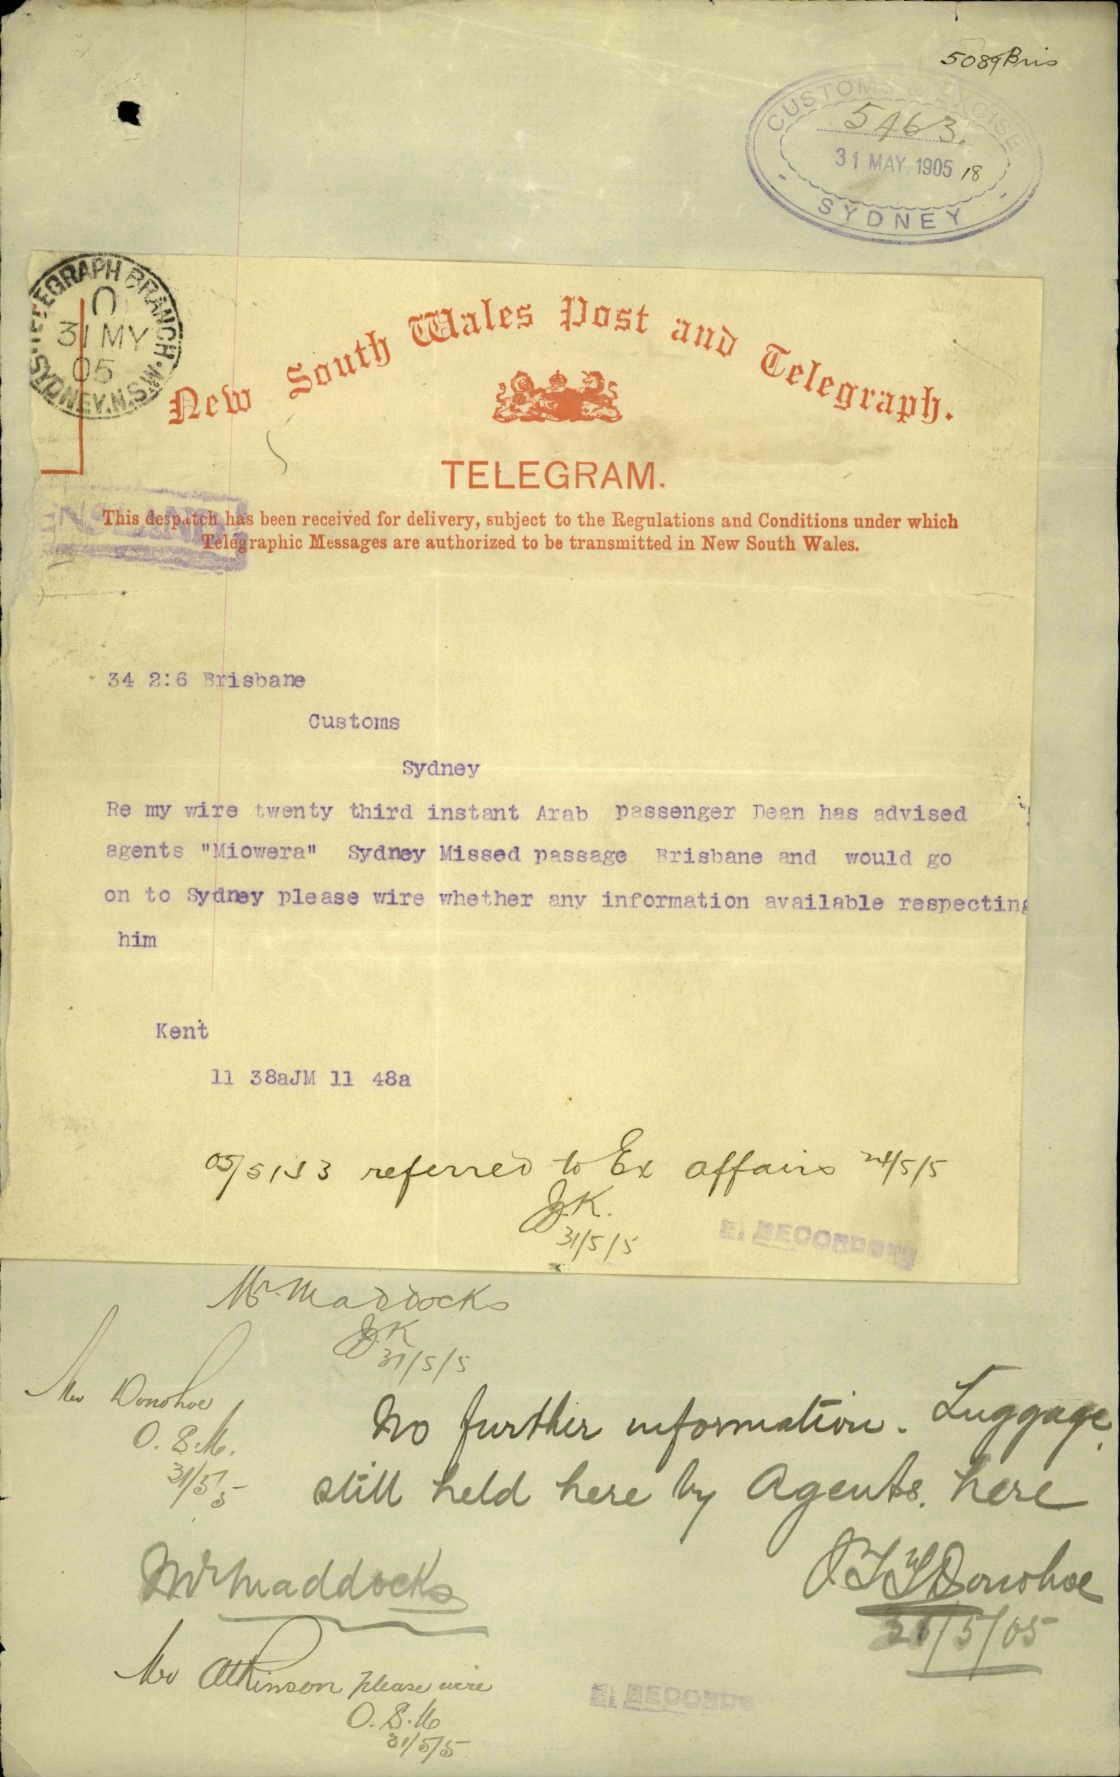 5089 Bris
CUSTOMS & EXCISE
5463.
31 MAY 1905 18
SYDNEY
TELEGRAPH BRANCH
31 MY
05
SYDNEY. N.S.W.
New South Wales Post and Telegraph.
TELEGRAM.
This despatch has been received for delivery, subject to the Regulations and Conditions under which
Telegraphic Messages are authorized to be transmitted in New South Wales.
34 2:6 Brisbane
Customs
Sydney
Re my wire twenty third instant Arab passenger Dean has advised
agents "Miowera" Sydney Missed passage Brisbane and would go
on to Sydney please wire whether any information available respecting
him
Kent
11 38aJM 11 48a
referred to Ex affairs 24/5/5
J.K.
31/5/5
RECORDS
Mr Maddocks
JK
31/5/5
Mr Donohoe
O.S.M.
31/5/5
No further information. Luggage
still held here by Agents. here
Donohoe
31/5/05
Mr Maddocks
Mr Atkinson please wire
O.S.M
31/5/5
RECORDS